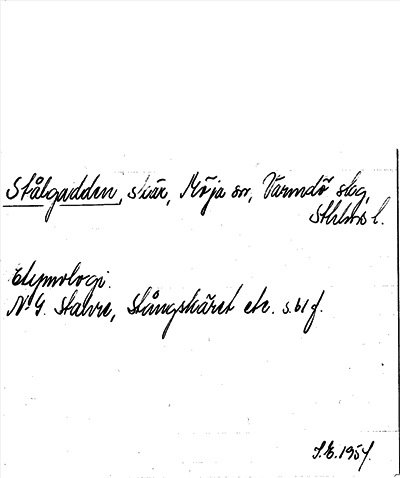 Stålgadden, skär, Möja sn, Värmdö skg,
Sthlms l.
Etymologi.
N. G. Stavre, Stångskäret etc. s. 61 f.
S.E. 1957.